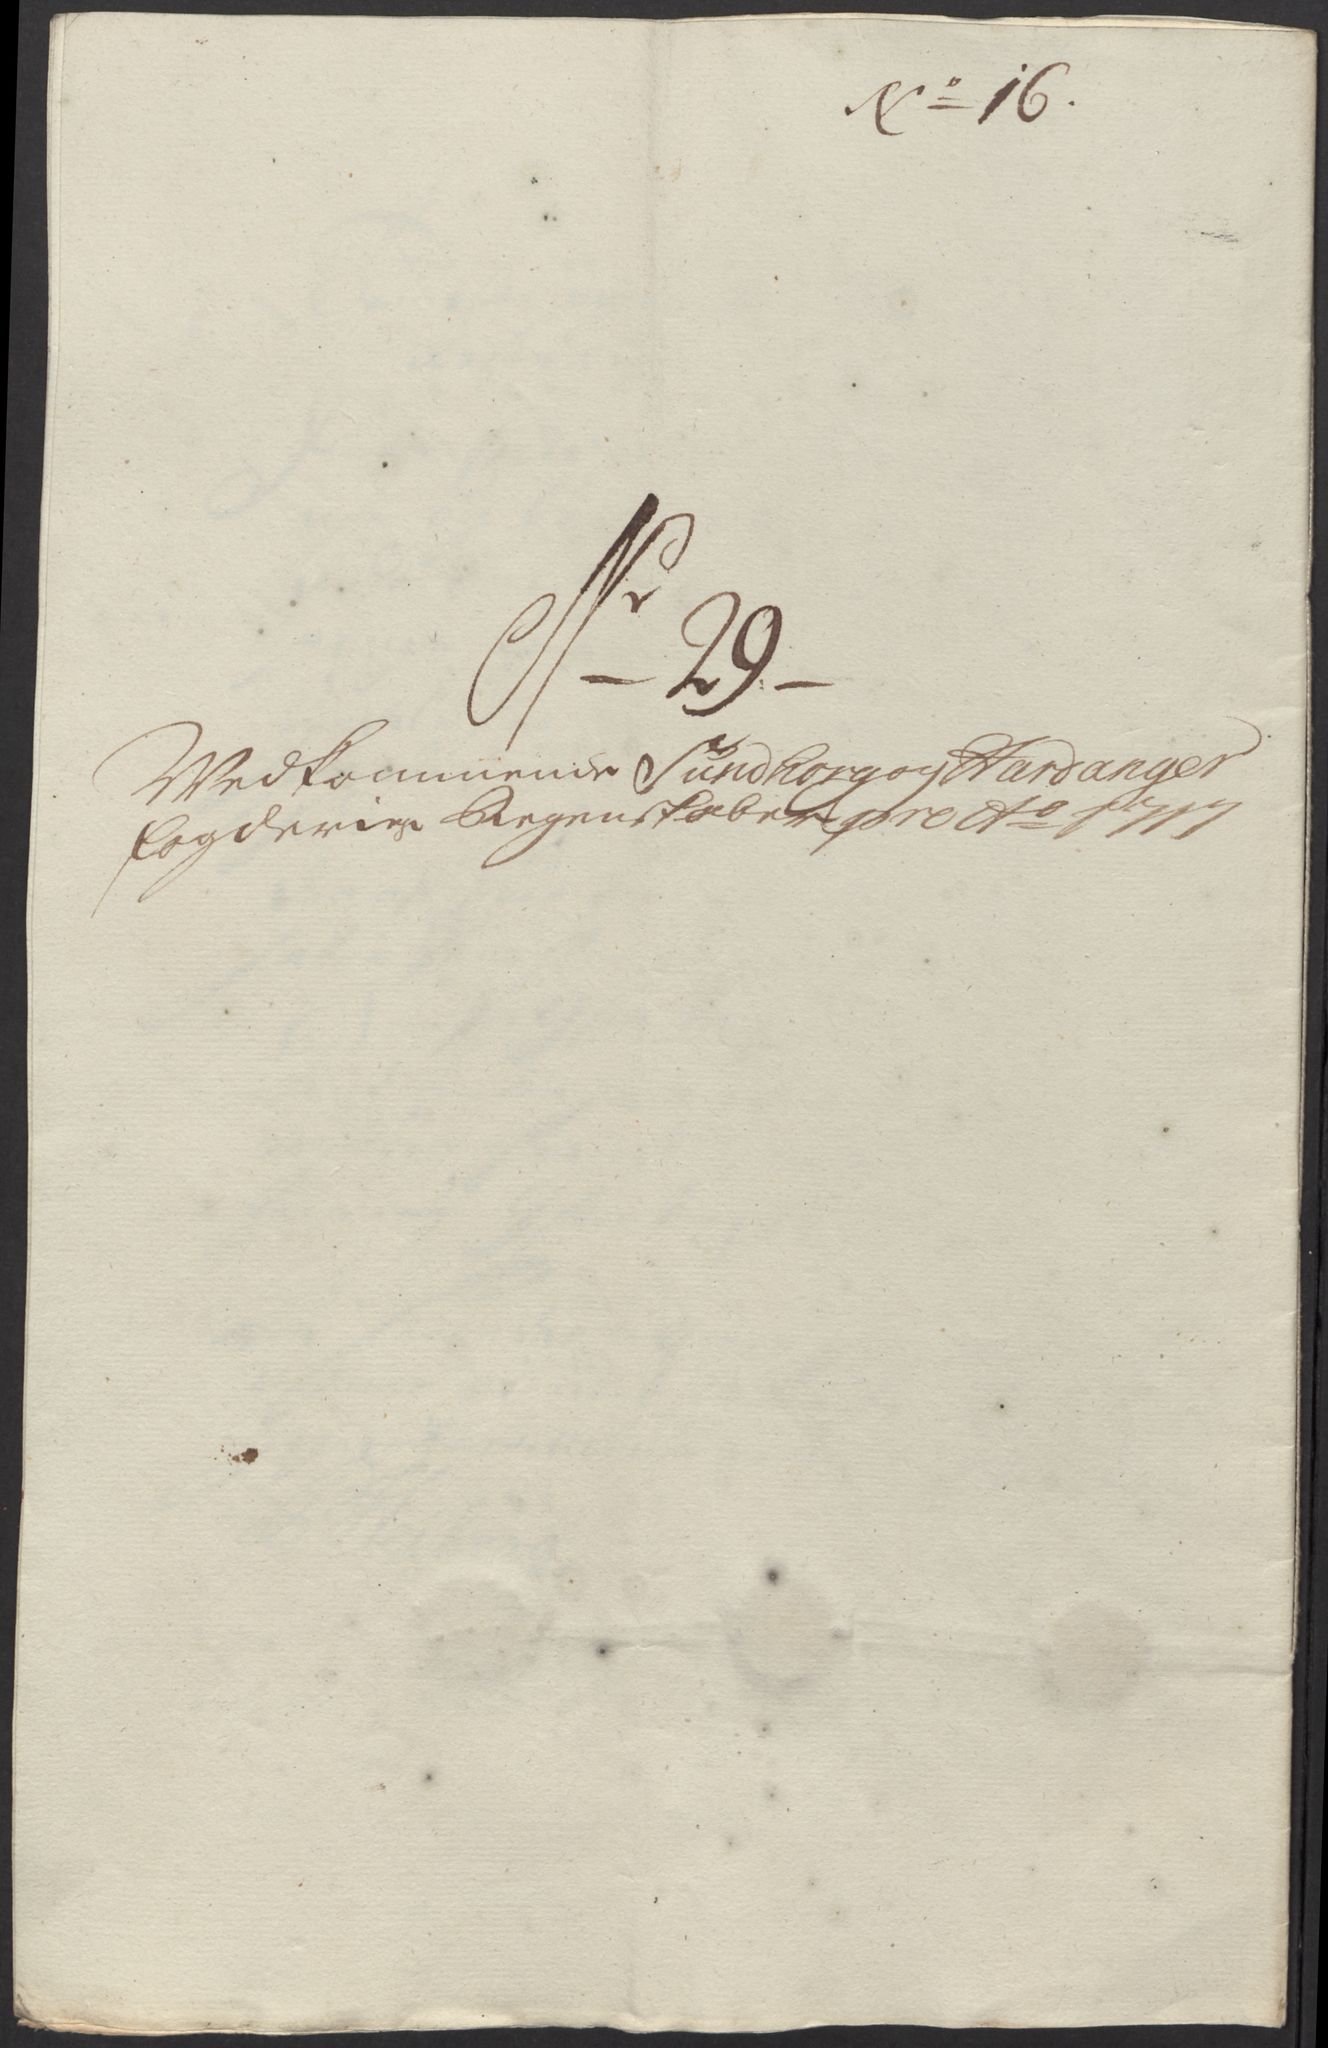 No 16.
Nr
- 29 -
Vedkommende Sundhorg og Hardanger
fogderies Regenskaber pro Ao 1717